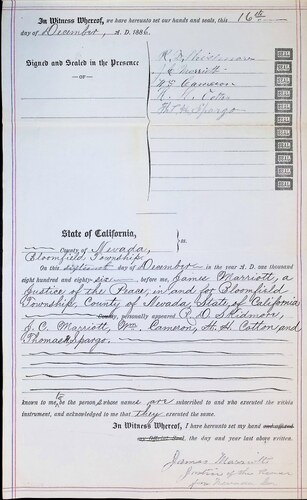 In Witness Whereof, we have hereunto set our hands and seals, this 16th
day of December, A. D. 1886.
Signed and Sealed in the Presence
—OF—
R. D. Skidmore
J. C. Marriott
Wm Cameron
H. H. Cotton
Thos H Spargo
SEAL
SEAL
SEAL
SEAL
SEAL
SEAL
SEAL
SEAL
SEAL
SEAL
State of California,
County of Nevada, ss.
Bloomfield Township.
On this sixteenth day of December in the year A. D. one thousand
eight hundred and eighty six before me, James Marriott, a
Justice of the Peace, in and for Bloomfield
Township, County of Nevada, State of California
County, personally appeared R. D. Skidmore,
J. C. Marriott, Wm Cameron, H. H. Cotton and
Thomas H Spargo.
known to me to be the persons whose names are subscribed to and who executed the within
instrument, and acknowledged to me that they executed the same.
In Witness Whereof, I have hereunto set my hand and affixed
my official Seal, the day and year last above written.
James Marriott
Justice of the Peace